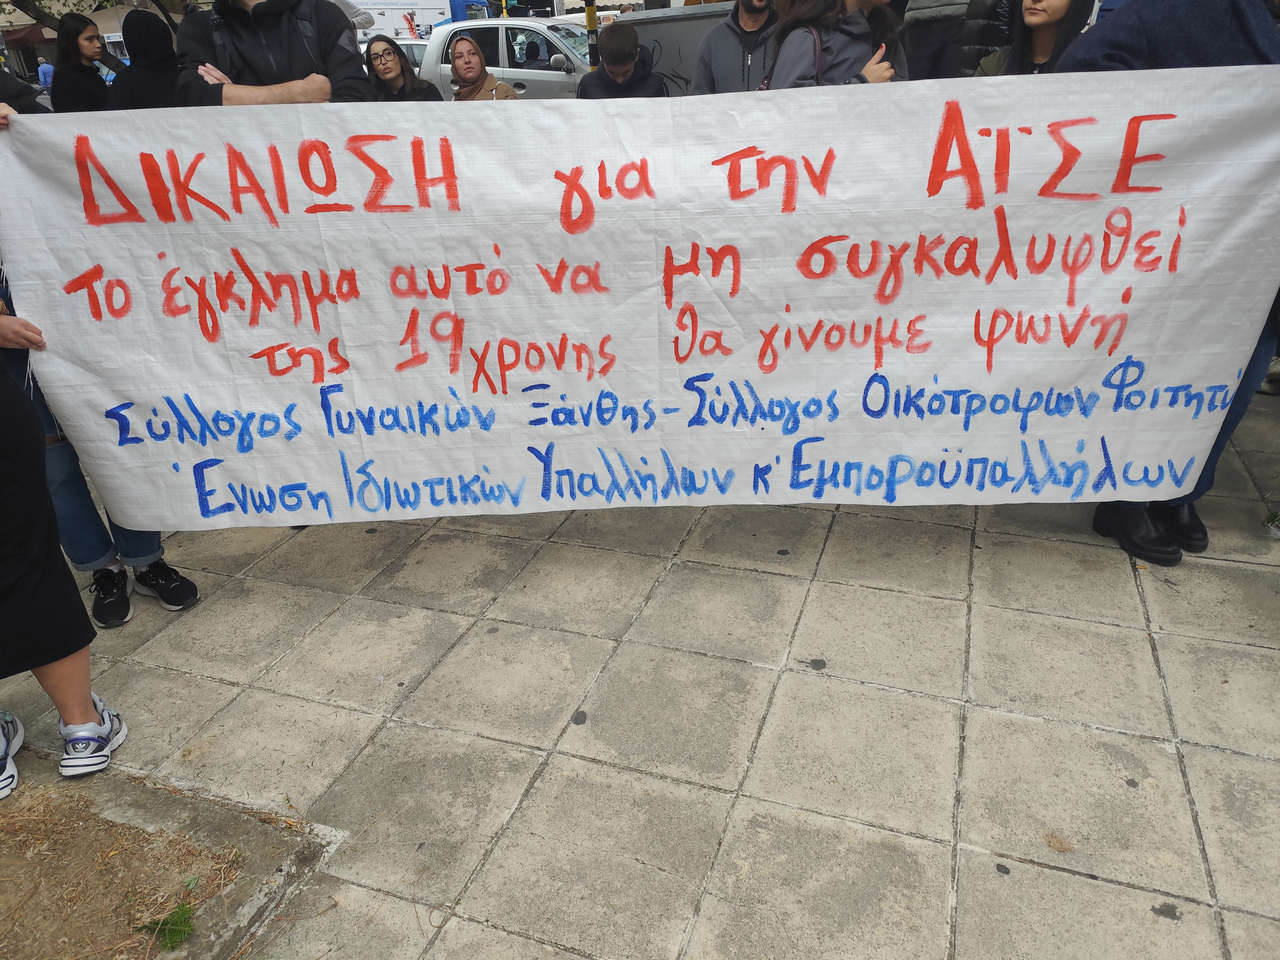 ΔΙΚΑΙΩΣΗ για την ΑΪΣΕ
Το έγκλημα αυτό να μη συγκαλυφθεί
της 19χρονης θα γίνουμε φωνή
Σύλλογος Γυναικών Ξάνθης - Σύλλογος Οικότροφων Φοιτητι
Ένωση Ιδιωτικών Υπαλλήλων κ' Εμποροϋπαλλήλων